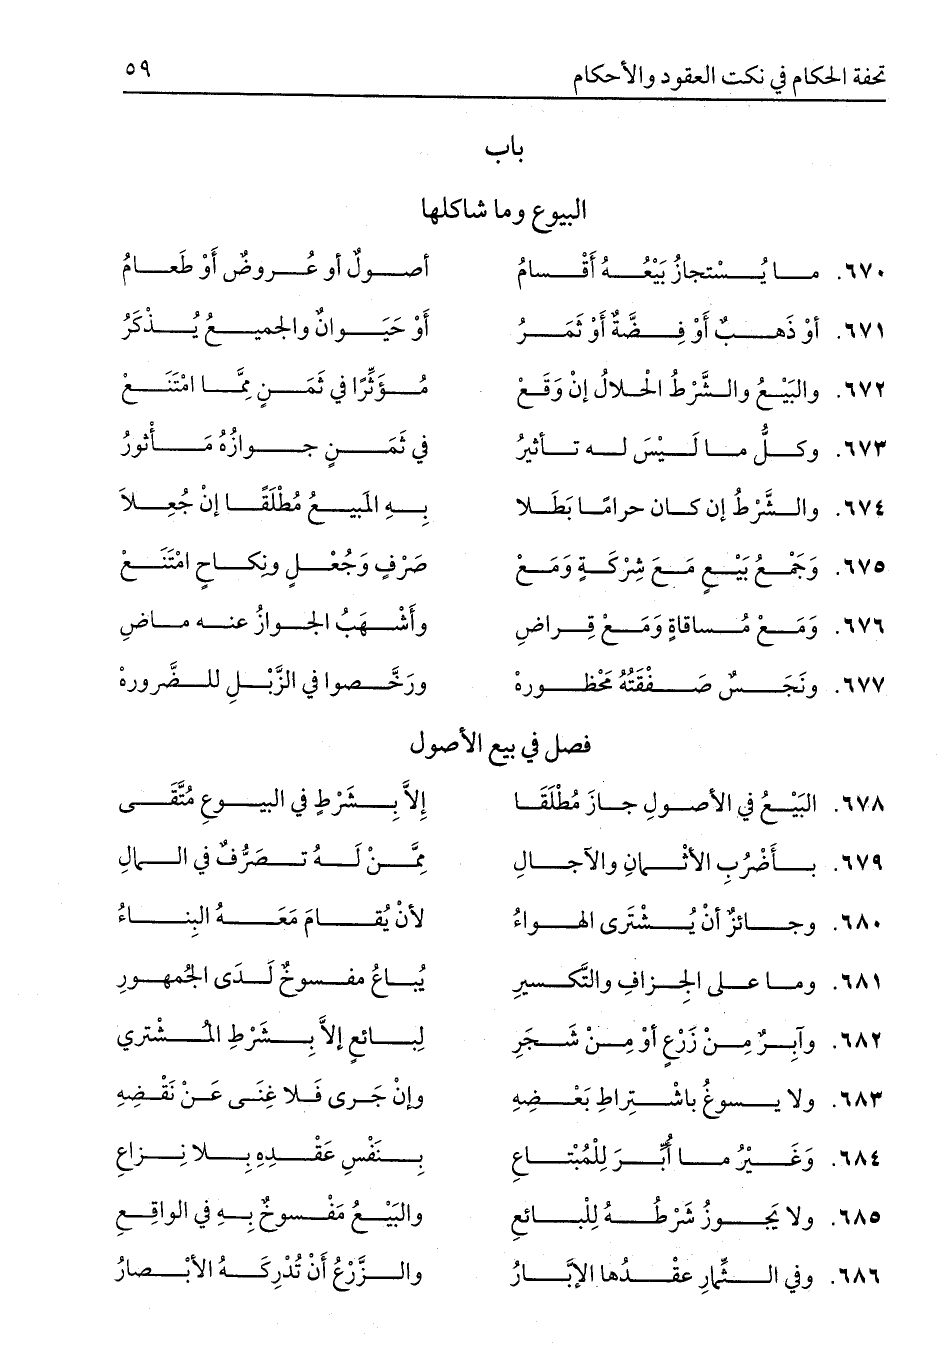 تحفة الحكام في نكت العقود والأحكام ٥٩
باب
البيوع وما شاكلها
٦٧٠. مَا يُسْتجازُ بَيْعُهُ أَقْسامُ أصولٌ أو عُروضٌ أَوْ طَعَامُ
٦٧١. أوْ ذَهبٌ أَوْ فِضَّةٌ أَوْ ثمَرُ أَوْ حَيَوانٌ والجميعُ يُذْكَرُ
٦٧٢. والبَيْعُ والشَّرْطُ الحْلالُ إنْ وَقَعْ مُؤَثِّرًا في ثَمَنٍ مِمَّا امْتَنَعْ
٦٧٣. وكلُّ ما لَيْسَ له تأثيرُ في ثَمَنٍ جوازُهُ مَأْثورُ
٦٧٤. والشَّرْطُ إن كان حرامًا بَطَلا بِهِ المَبيعُ مُطْلَقًا إنْ جُعِلاَ
٦٧٥. وَجَمْعُ بَيْعٍ مَعَ شِرْكَةٍ وَمَعْ صَرْفٍ وَجُعْلٍ ونِكاحٍ امْتَنَعْ
٦٧٦. وَمَعْ مُساقاةٍ وَمَعْ قِراضِ وأَشْهَبُ الجوازُ عنه ماضِ
٦٧٧. ونَجَسٌ صَفْقَتُهُ مَحْظورهْ ورَخَّصوا في الزَّبْلِ للضَّرورهْ
فصل في بيع الأصول
٦٧٨. البَيْعُ في الأصولِ جازَ مُطْلَقَا إلاَّ بِشَرْطٍ في البيوعِ مُتَّقَى
٦٧٩. بأَضْرُبِ الأثْمانِ والآجالِ مِمَّنْ لَهُ تصَرُّفٌ في المالِ
٦٨٠. وجائزٌ أنْ يُشْتَرَى الهواءُ لأنْ يُقامَ مَعَهُ البِناءُ
٦٨١. وما على الجِزافِ والتَّكسيرِ يُباعُ مفسوخٌ لَدَى الجُمهورِ
٦٨٢. وآبِرٌ مِنْ زَرْعٍ أوْ مِنْ شَجَرِ لِبائعٍ إلاَّ بِشَرْطِ المُشْتري
٦٨٣. ولا يسوغُ باشْتِراطِ بَعْضِهِ وإنْ جَرى فَلا غِنَى عَنْ نَقْضِهِ
٦٨٤. وَغَيْرُ ما أُبِّرَ لِلْمُبْتاعِ بِنَفْسِ عَقْدِهِ بِلا نِزاعِ
٦٨٥. ولا يَجوزُ شَرْطُهُ لِلْبائعِ والبَيْعُ مَفْسوخٌ بِهِ في الواقِعِ
٦٨٦. وفي الثِّمارِ عقْدُها الإبَّارُ والزَّرْعُ أَنْ تُدْرِكَهُ الأبْصارُ